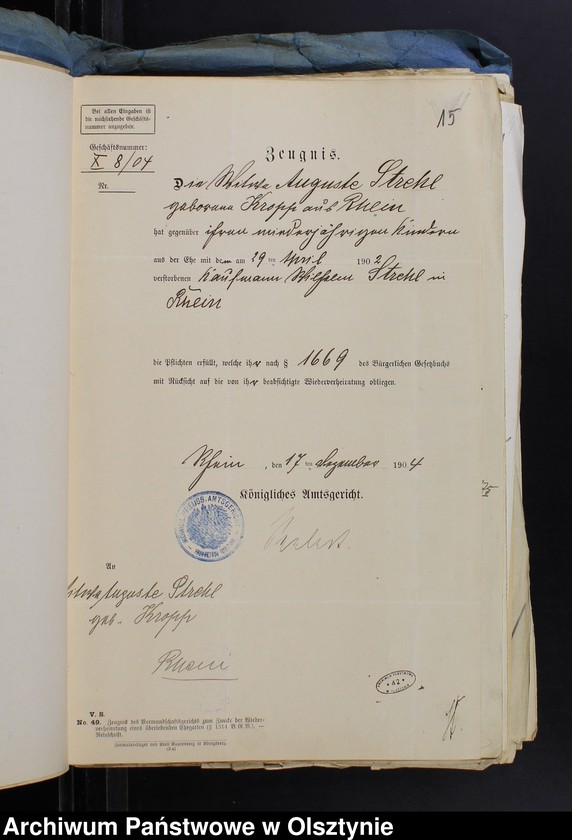 15
Bei allen Eingaben ist
die nachstehende Geschäfts-
nummer anzugeben.
Geschäftsnummer:
X 8/04
Nr.
Zeugnis.
Die Witwe Auguste Strehl
geborene Kropp aus Rhein
hat gegenüber ihren minderjährigen Kindern
aus der Ehe mit dem am 29 ten April 1902
verstorbenen Kaufmann Wilhelm Strehl in
Rhein
die Pflichten erfüllt, welche ihr nach § 1669 des Bürgerlichen Gesetzbuchs
mit Rücksicht auf die von ihr beabsichtigte Wiederverheiratung obliegen.
Rhein, den 17 ten Dezember 1904
Königliches Amtsgericht.
An
Witwe Auguste Strehl
geb. Kropp
Rhein
V. S.
No. 49. Zeugnis des Vormundschaftsgerichts zum Zwecke der Wieder-
verheiratung eines überlebenden Ehegatten (§ 1314 B.G.B.). —
Reinschrift.
Archiwum Państwowe w Olsztynie